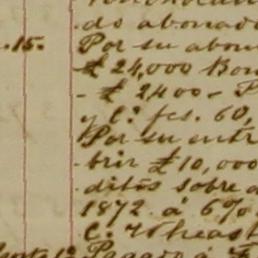 do abonado
.15. Por su abon
£ 24,000 Bon
- £ 2400 -
y C.ª fcs. 60,
Por su entr
brir £ 10,000
ditos sobre
1872 á 6%.
C.
Pagado á